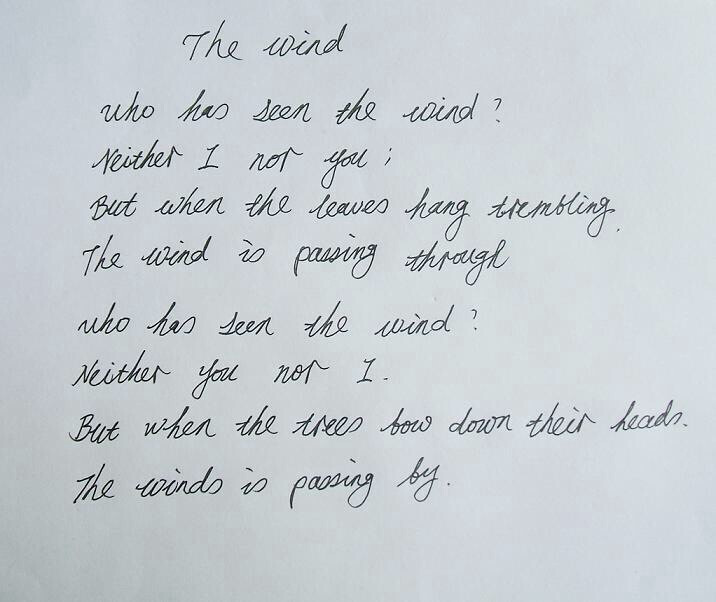 The wind
who has seen the wind?
Neither I nor you;
But when the leaves hang trembling.
The wind is passing through
who has seen the wind?
Neither you nor I.
But when the trees bow down their heads.
The winds is passing by.